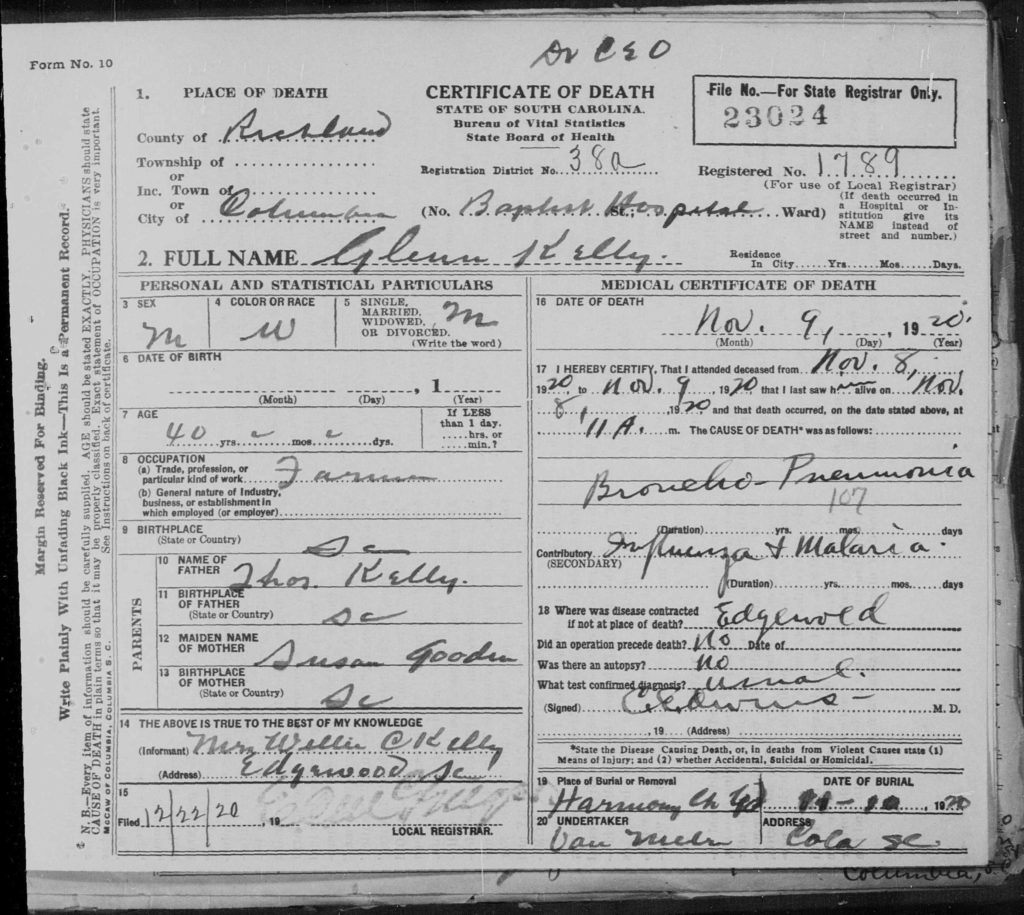 Dr C E O
Form No. 10
1. PLACE OF DEATH
County of Richland
Township of
or
Inc. Town of
or
City of Columbia
CERTIFICATE OF DEATH
STATE OF SOUTH CAROLINA.
Bureau of Vital Statistics
State Board of Health
File No.—For State Registrar Only.
23024
Registration District No. 38a
Registered No. 1789
(For use of Local Registrar)
(No. Baptist Hospital St.; Ward)
(If death occurred in
a Hospital or In-
stitution give its
NAME instead of
street and number.)
2. FULL NAME Glenn Kelly.
Residence
In City Yrs. Mos. Days.
PERSONAL AND STATISTICAL PARTICULARS
3 SEX
M
4 COLOR OR RACE
W
5 SINGLE,
MARRIED,
WIDOWED,
OR DIVORCED. M
(Write the word)
6 DATE OF BIRTH
, 1
(Month) (Day) (Year)
7 AGE
40 yrs. mos. dys.
If LESS
than 1 day.
hrs. or
min.?
8 OCCUPATION
(a) Trade, profession, or
particular kind of work
(b) General nature of Industry,
business, or establishment in
which employed (or employer)
9 BIRTHPLACE
(State or Country) Sc
PARENTS
10 NAME OF
FATHER Thos. Kelly.
11 BIRTHPLACE
OF FATHER
(State or Country) Sc
12 MAIDEN NAME
OF MOTHER Susan
13 BIRTHPLACE
OF MOTHER
(State or Country) Sc
14 THE ABOVE IS TRUE TO THE BEST OF MY KNOWLEDGE
(Informant) Mrs Willie C Kelly
(Address) Edgewood Sc
15
Filed 12/22/20, 19
LOCAL REGISTRAR.
MEDICAL CERTIFICATE OF DEATH
16 DATE OF DEATH
Nov. 9, , 1920.
(Month) (Day) (Year)
17 I HEREBY CERTIFY, That I attended deceased from Nov. 8,
1920, to Nov. 9 , 1920 that I last saw h alive on Nov,
8, , 1920 and that death occurred, on the date stated above, at
11 A. m. The CAUSE OF DEATH* was as follows:
Broncho-Pneumonia
107
(Duration) yrs. mos. days
Contributory Influenza & Malaria.
(SECONDARY)
(Duration) yrs. mos. days
18 Where was disease contracted
if not at place of death? Edgewold
Did an operation precede death? No Date of
Was there an autopsy? No
What test confirmed diagnosis? usual.
(Signed) M. D.
, 19 (Address)
*State the Disease Causing Death, or, in deaths from Violent Causes state (1)
Means of Injury; and (2) whether Accidental, Suicidal or Homicidal.
19 Place of Burial or Removal
Harmony Ch Yd
DATE OF BURIAL
11-10 1920
20 UNDERTAKER
Van
ADDRESS
Cola SC.
Columbia,
Margin Reserved For Binding.
Write Plainly With Unfading Black Ink—This Is a Permanent Record.
N. B.—Every item of information should be carefully supplied. AGE should be stated EXACTLY. PHYSICIANS should state
CAUSE OF DEATH in plain terms so that it may be properly classified. Exact statement of OCCUPATION is very important.
See Instructions on back of certificate.
McCAW OF COLUMBIA, COLUMBIA S. C.